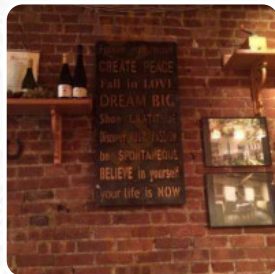 CREATE PEACE
Fall in LOVE
DREAM BIG
Show GRATITUDE
Discover
be SPONTANEOUS
BELIEVE in yourself
your life is NOW